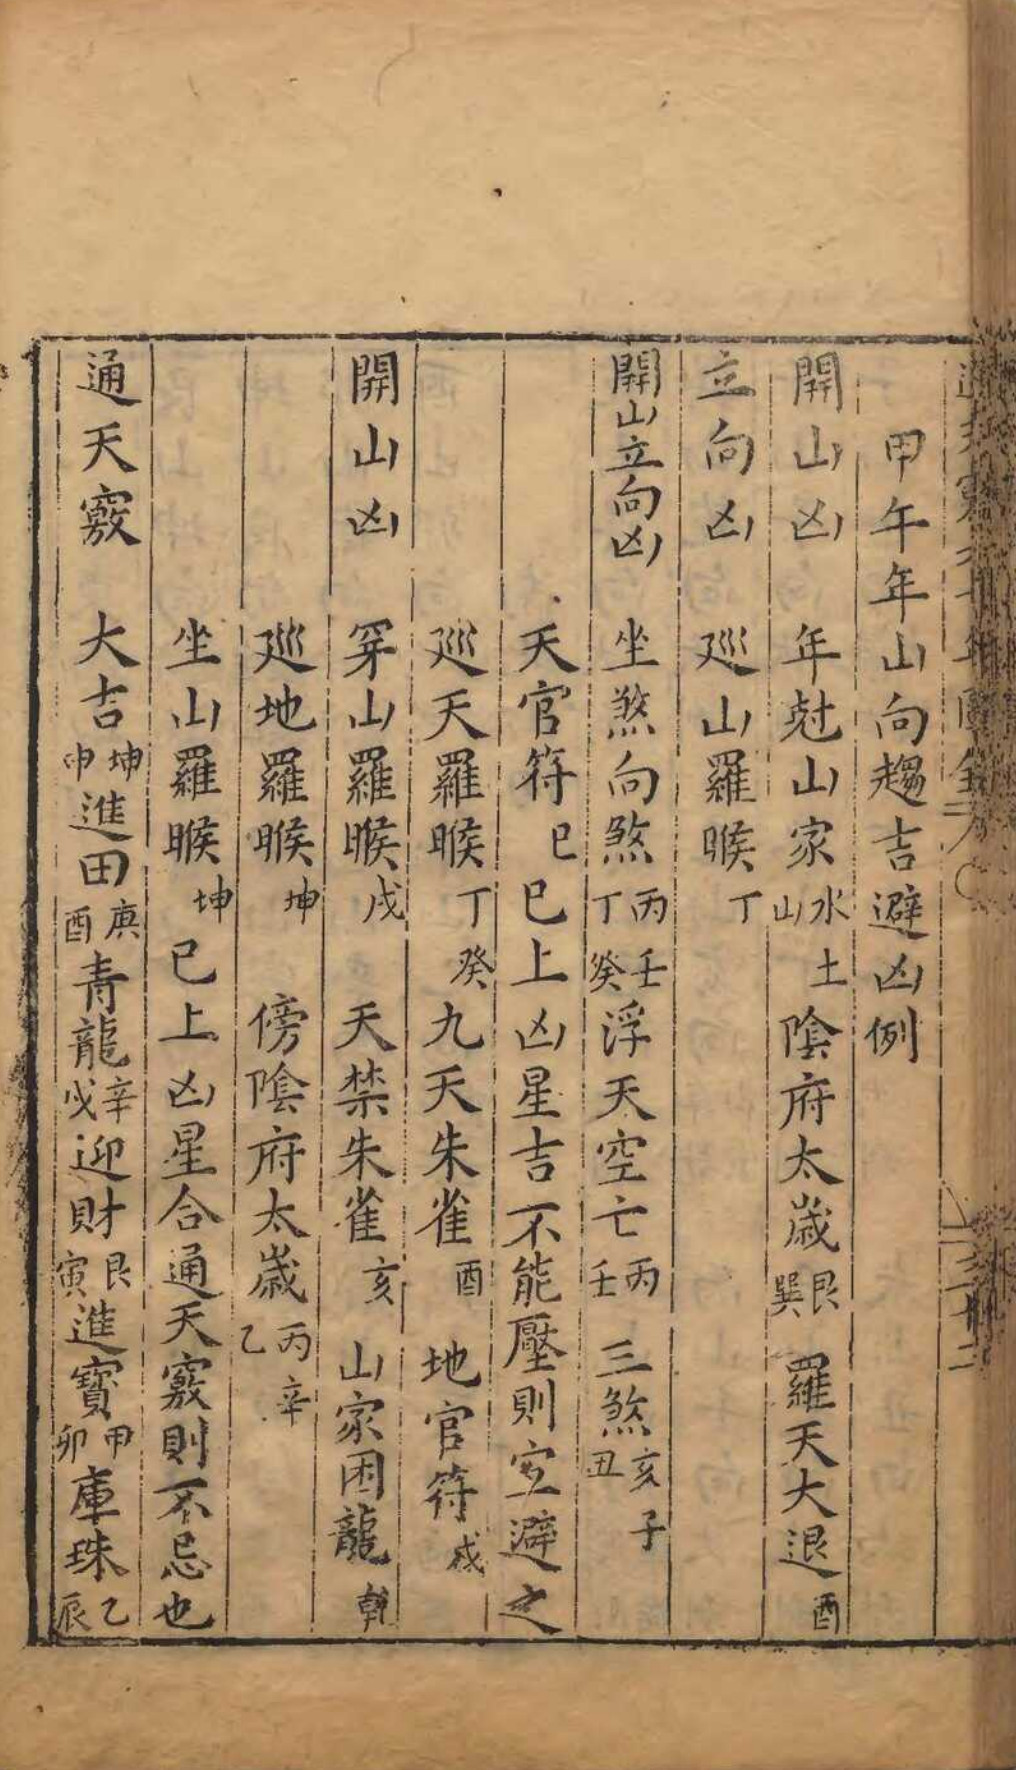 甲午年山向趨吉避凶例
開山凶 年尅山家水土山 陰府太歲艮巽 羅天大退酉
立向凶 巡山羅睺丁
開山立向凶 坐煞向煞丙壬丁癸浮天空亡丙壬 三煞亥子丑
天官符巳 已上凶星吉不能壓則宜避之
巡天羅睺丁癸九天朱雀酉 地官符戌
開山凶 穿山羅睺戌 天禁朱雀亥 山家困龍乾
巡地羅睺坤 傍陰府太歲丙辛乙
坐山羅睺坤 已上凶星合通天竅則不忌也
通天竅 大吉坤申進田庚酉青龍辛戌迎財艮寅進寶甲卯庫珠乙辰